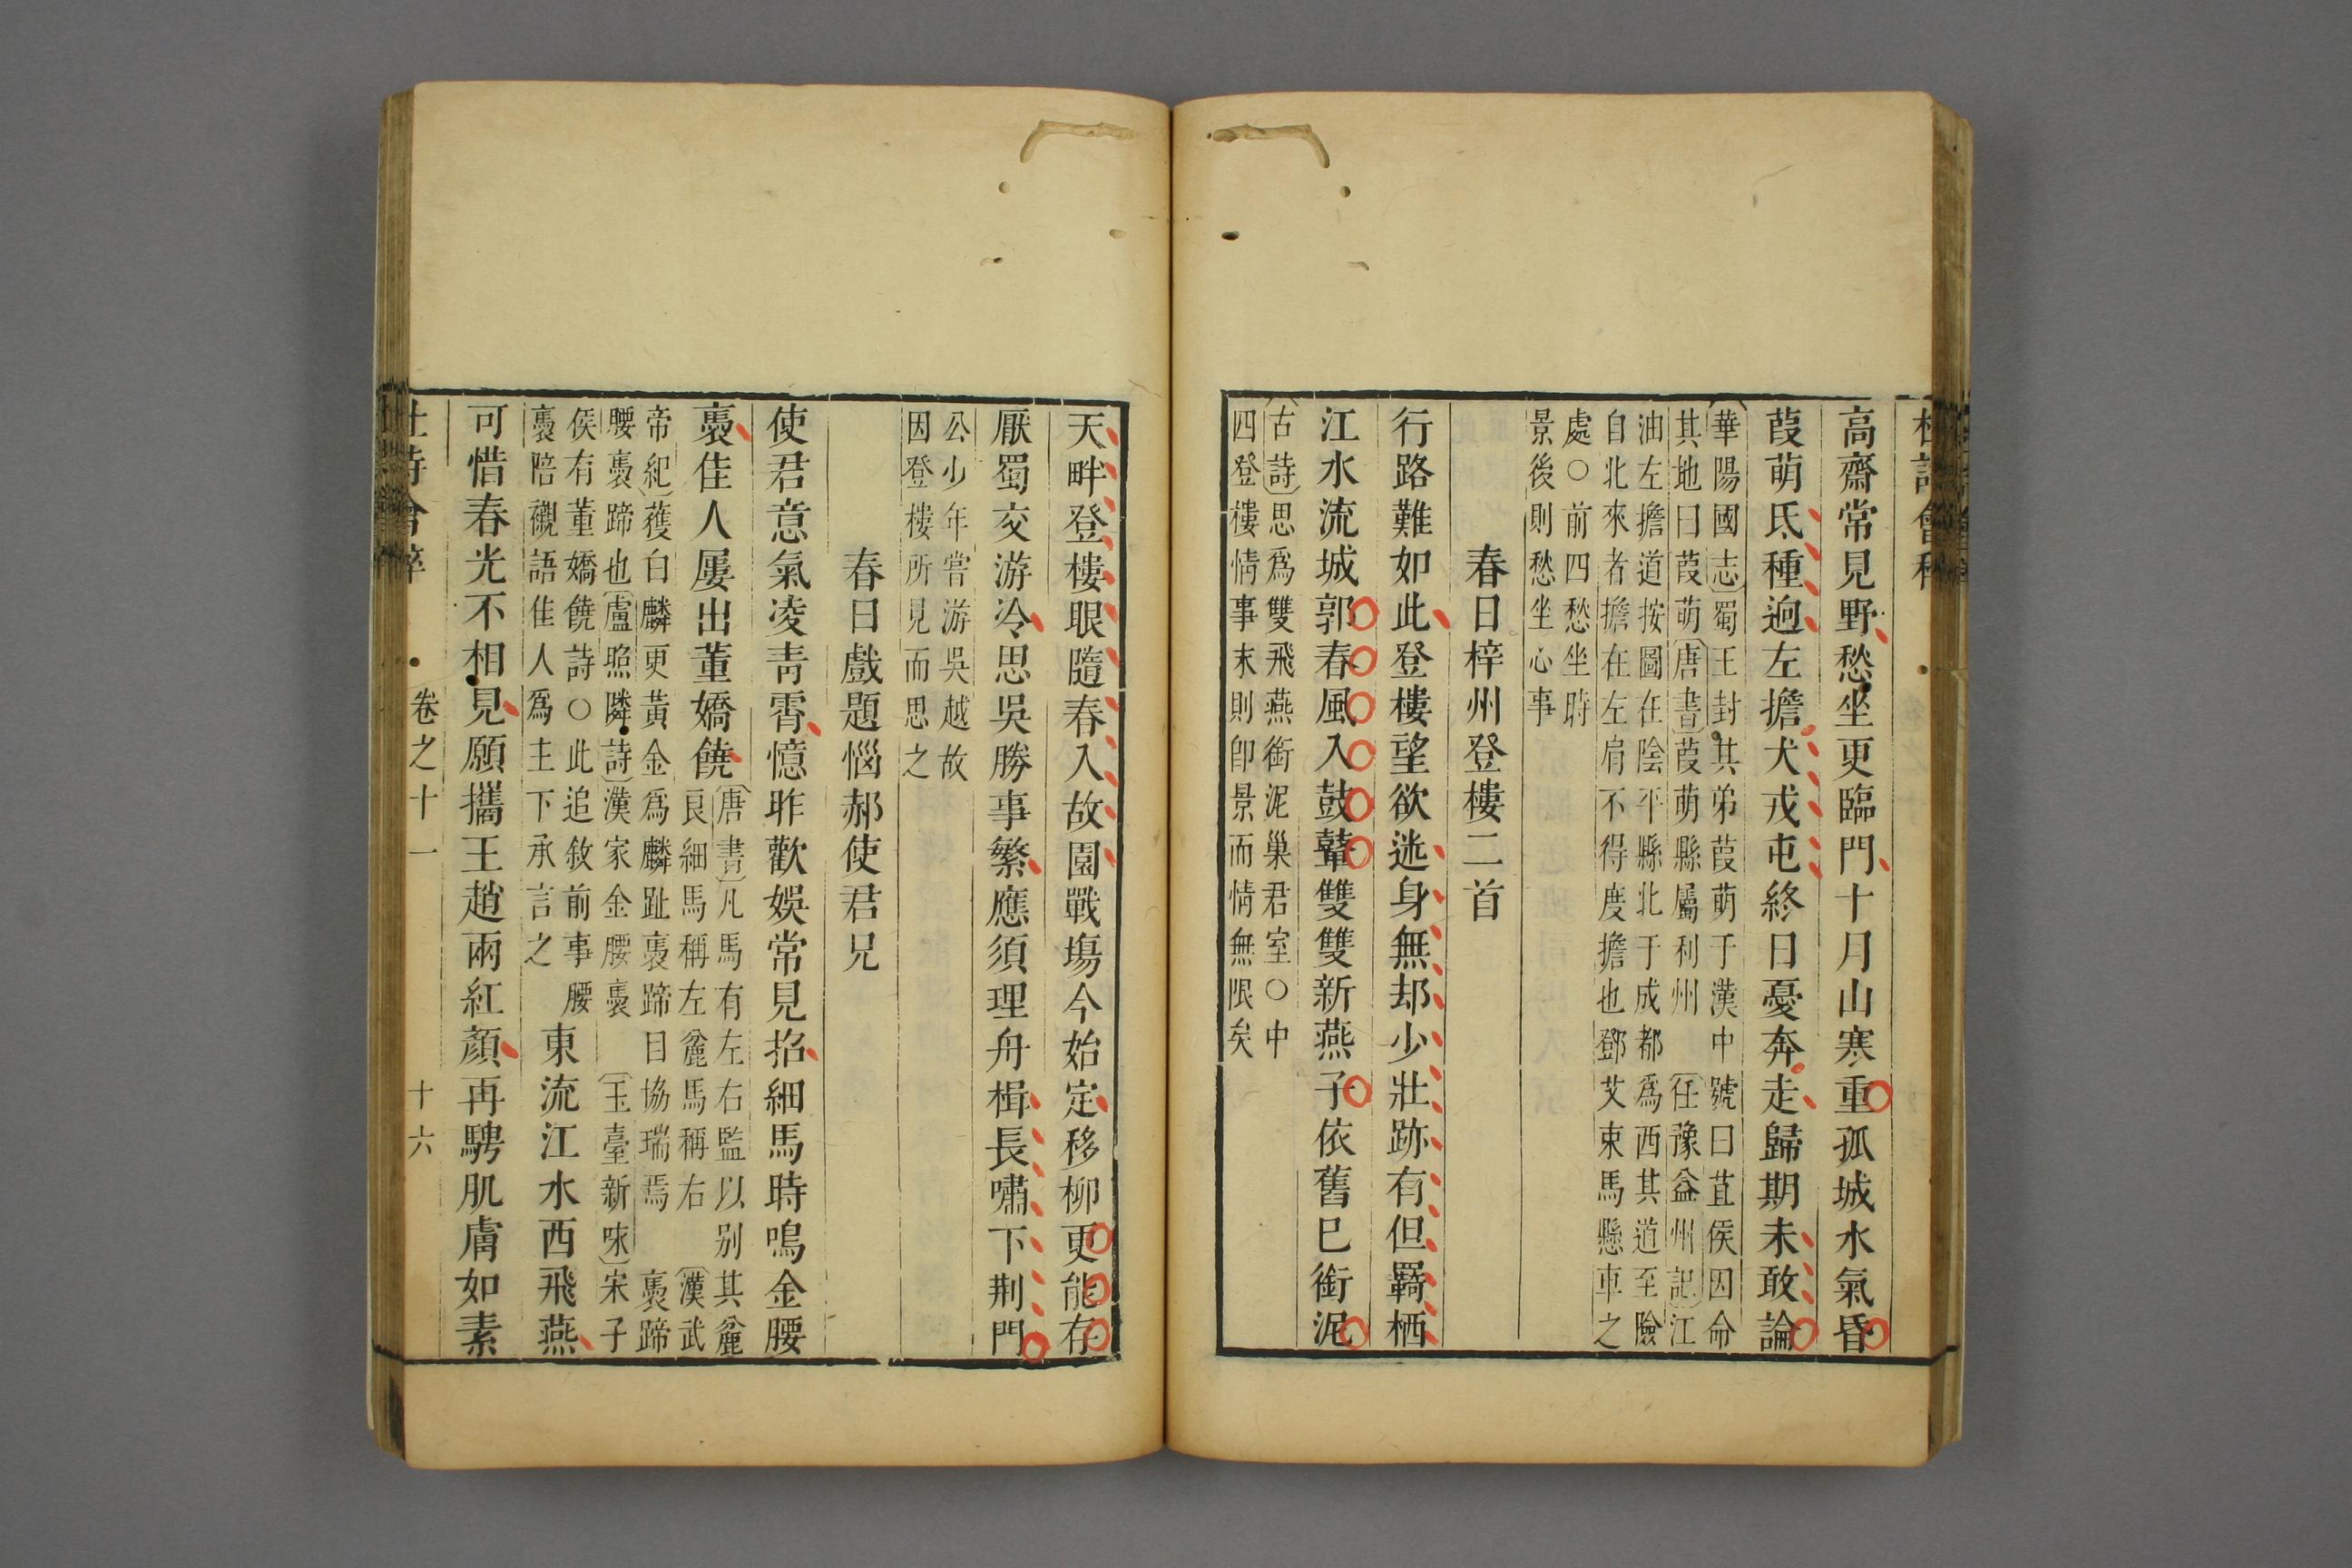 高齋常見野愁坐更臨門十月山寒重孤城水氣昏
葭萌氐種逈左擔犬戎屯終日憂奔走歸期未敢論
華陽國志蜀王封其弟葭萌于漢中號曰苴侯因命
其地曰葭萌唐書葭萌縣屬利州任豫益州記江
油左擔道按圖在陰平縣北于成都為西其道至險
自北來者擔在左肩不得度擔也鄧艾束馬懸車之
處○前四愁坐時
景後則愁坐心事
春日梓州登樓二首
行路難如此登樓望欲迷身無却少壯跡有但羇栖
江水流城郭春風入鼓鼙雙雙新燕子依舊巳銜泥
古詩思為雙飛燕銜泥巢君室○中
四登樓情事末則卽景而情無限矣
天畔登樓眼隨春入故園戰塲今始定移柳更能存
厭蜀交游冷思吳勝事繁應須理舟楫長嘯下荆門
公少年嘗游吳越故
因登樓所見而思之
春日戲題惱郝使君兄
使君意氣凌靑霄憶昨歡娛常見招細馬時鳴金腰
褭佳人屢出董嬌饒
唐書凡馬有左右監以别其麄
良細馬稱左麄馬稱右漢武
帝紀獲白麟更黃金為麟趾褭蹄目協瑞焉褭蹄
腰褭蹄也盧照隣詩漢家金腰褭玉臺新咏宋子
侯有董嬌饒詩○此追敘前事腰
褭陪襯語佳人爲主下承言之
東流江水西飛燕
可惜春光不相見願攜王趙兩紅顏再騁肌膚如素
卷之十一
十六